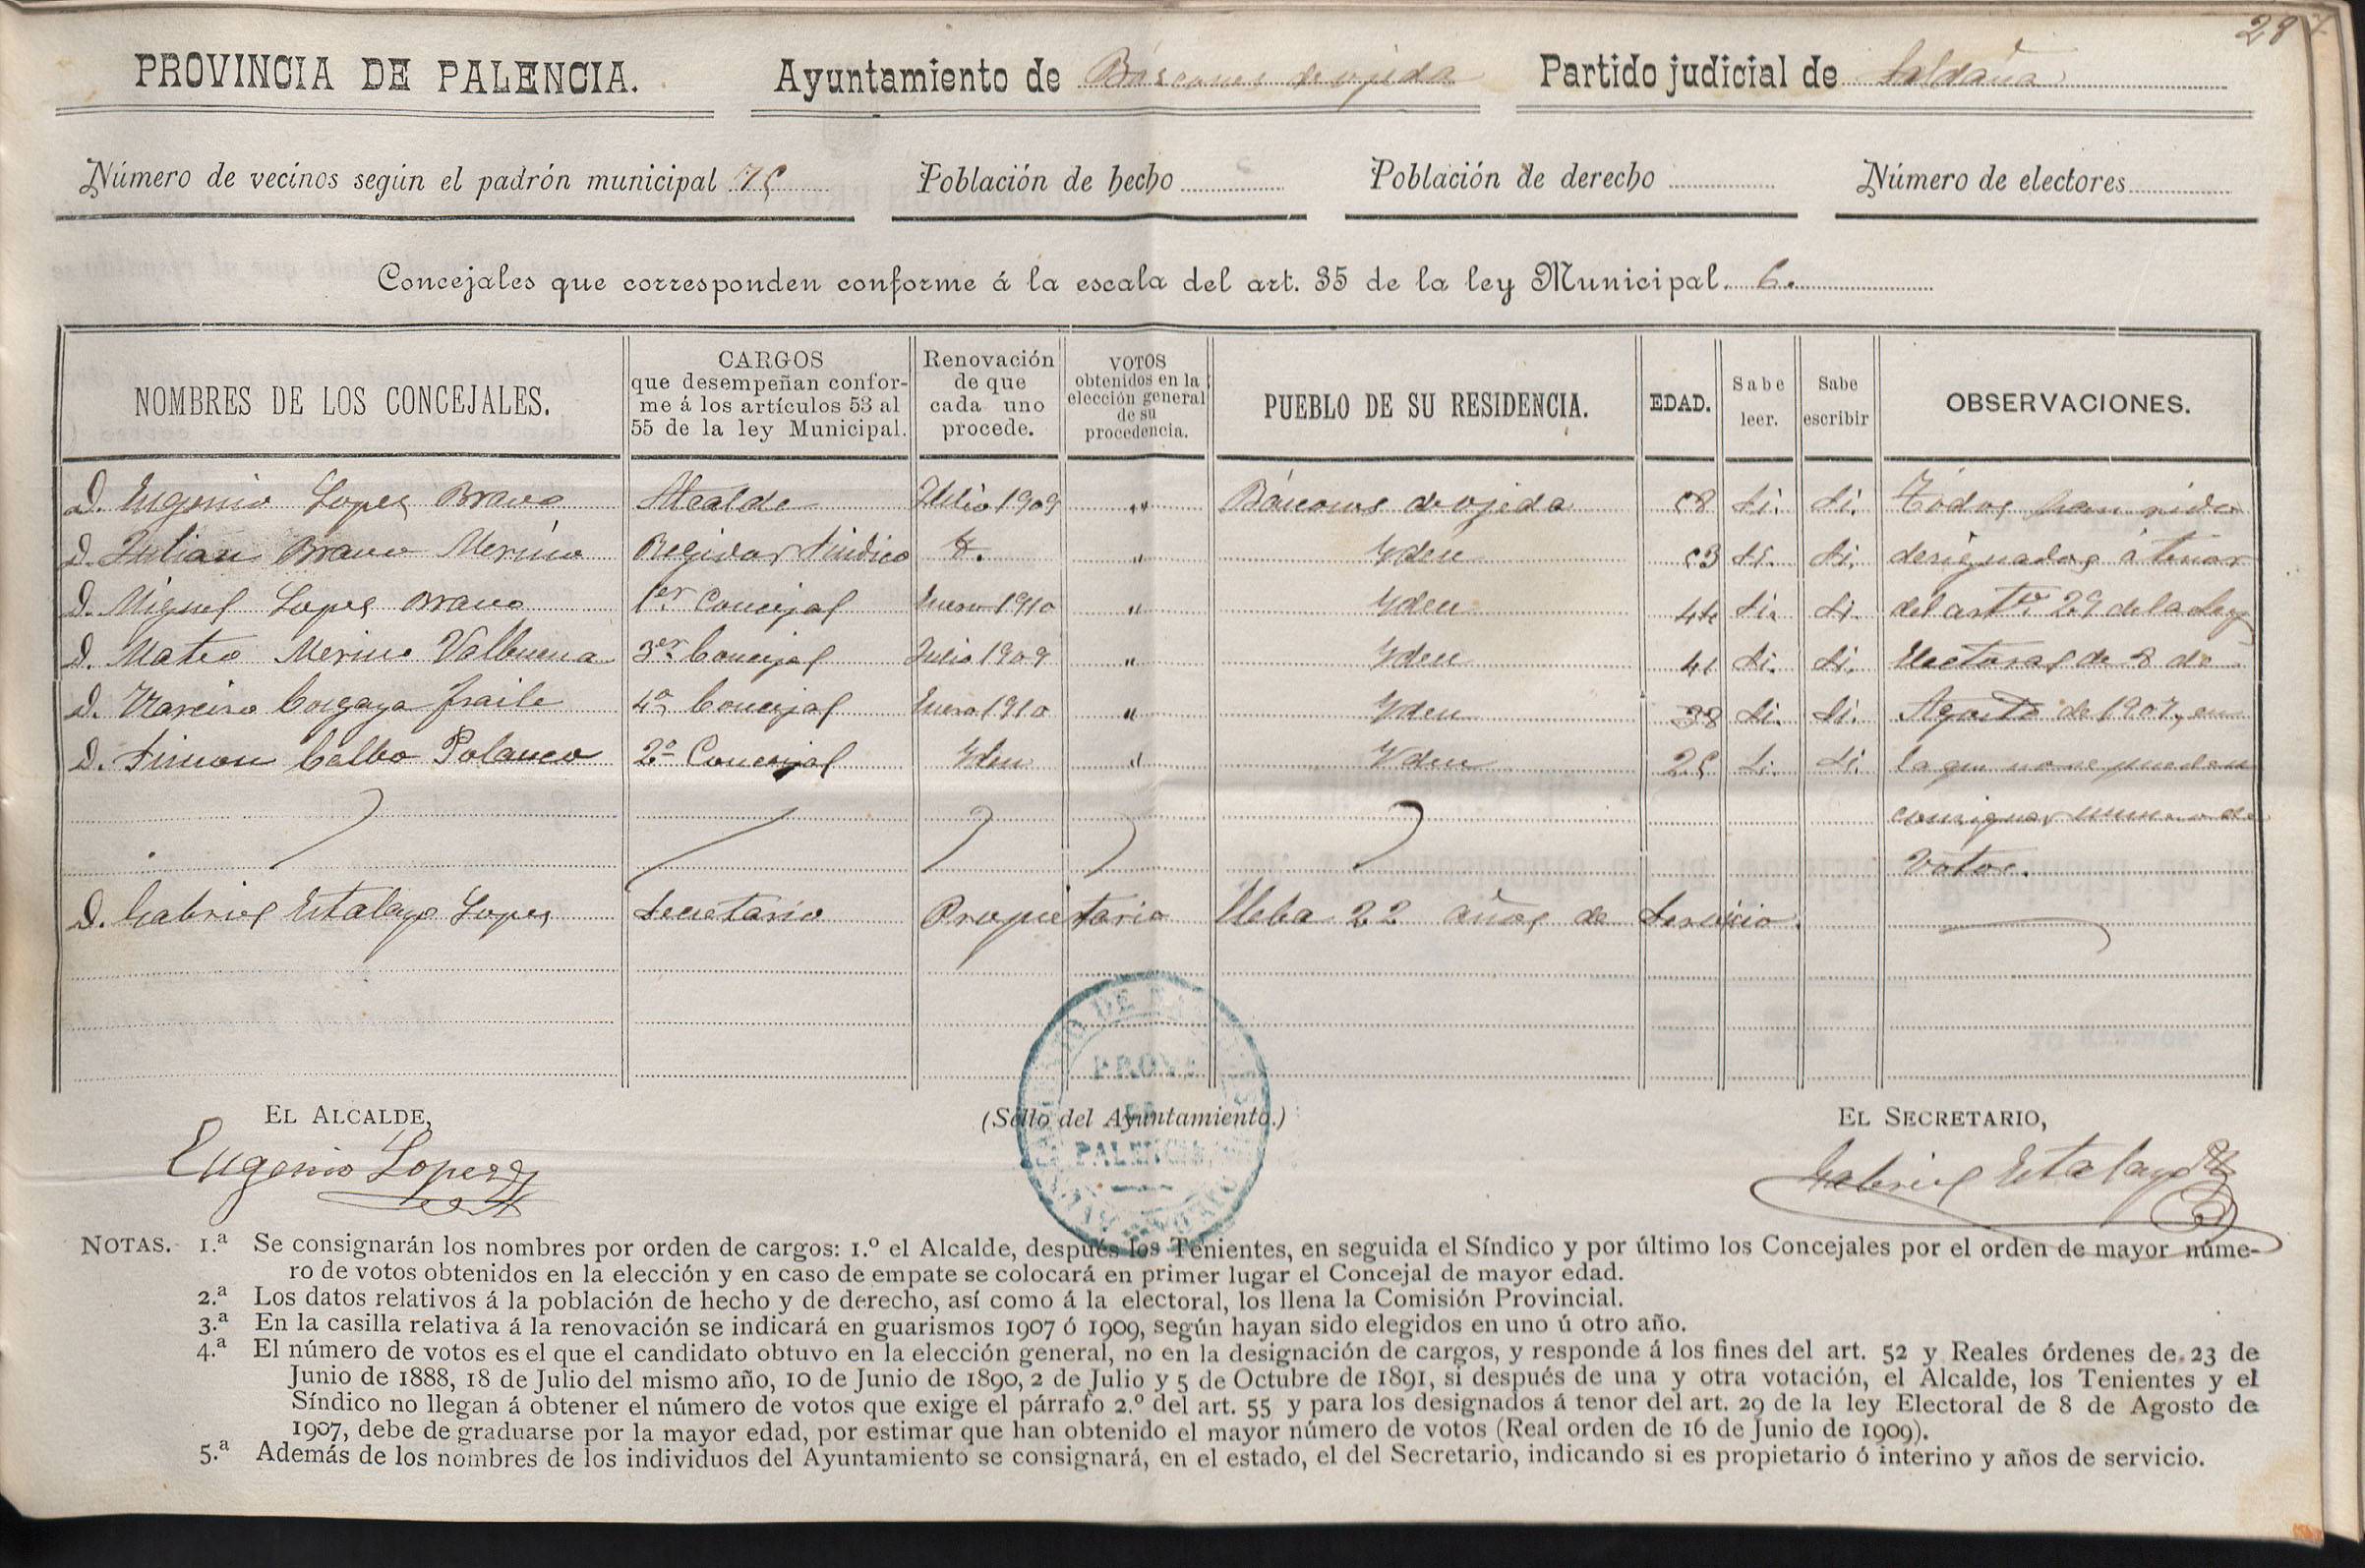 28
PROVINCIA DE PALENCIA. Ayuntamiento de Báscones de ojeda Partido judicial de Saldaña
Número de vecinos según el padrón municipal 75 Población de hecho Población de derecho Número de electores
Concejales que corresponden conforme á la escala del art. 35 de la ley Municipal. 6.
NOMBRES DE LOS CONCEJALES. CARGOS que desempeñan confor- me á los artículos 53 al 55 de la ley Municipal. Renovación de que cada uno procede. VOTOS obtenidos en la elección general de su procedencia. PUEBLO DE SU RESIDENCIA. EDAD. Sabe leer. Sabe escribir OBSERVACIONES.
D. Eugenio Lopez Bravo Alcalde Julio 1909 " Báscones de ojeda 58 Si. Si. Todos han sido
D. Julian Bravo Merino Regidor Sindico " Yden 53 Si. Si. designados á tenor
D. Miguel Lopez Bravo 1er Concejal Enero 1910 " Yden 44 Si. Si. del arto. 29 de la Ley
D. Mateo Merino Valbuena 3er Concejal Julio 1909 " Yden 41 Si. Si. Electoral de 8 de
D. Narciso Cosgaya fraile 4o Concejal Enero 1910 " Yden 38 Si. Si. Agosto de 1907, en
D. Simon Calbo Polanco 2o Concejal Yden " Yden 25 Si. Si. la que no se pueden
consignar numero de
votos.
D. Gabriel Estalayo Lopez Secretario Propietario lleba 22 años de Servicio.
EL ALCALDE, (Sello del Ayuntamiento.) EL SECRETARIO,
PROVA
DE
PALENCIA
Eugenio Lopez Gabriel Estalayo
NOTAS. 1.ª Se consignarán los nombres por orden de cargos: 1.º el Alcalde, después los Tenientes, en seguida el Síndico y por último los Concejales por el orden de mayor núme-
ro de votos obtenidos en la elección y en caso de empate se colocará en primer lugar el Concejal de mayor edad.
2.ª Los datos relativos á la población de hecho y de derecho, así como á la electoral, los llena la Comisión Provincial.
3.ª En la casilla relativa á la renovación se indicará en guarismos 1907 ó 1909, según hayan sido elegidos en uno ú otro año.
4.ª El número de votos es el que el candidato obtuvo en la elección general, no en la designación de cargos, y responde á los fines del art. 52 y Reales órdenes de 23 de
Junio de 1888, 18 de Julio del mismo año, 10 de Junio de 1890, 2 de Julio y 5 de Octubre de 1891, si después de una y otra votación, el Alcalde, los Tenientes y el
Síndico no llegan á obtener el número de votos que exige el párrafo 2.º del art. 55 y para los designados á tenor del art. 29 de la ley Electoral de 8 de Agosto de
1907, debe de graduarse por la mayor edad, por estimar que han obtenido el mayor número de votos (Real orden de 16 de Junio de 1909).
5.ª Además de los nombres de los individuos del Ayuntamiento se consignará, en el estado, el del Secretario, indicando si es propietario ó interino y años de servicio.